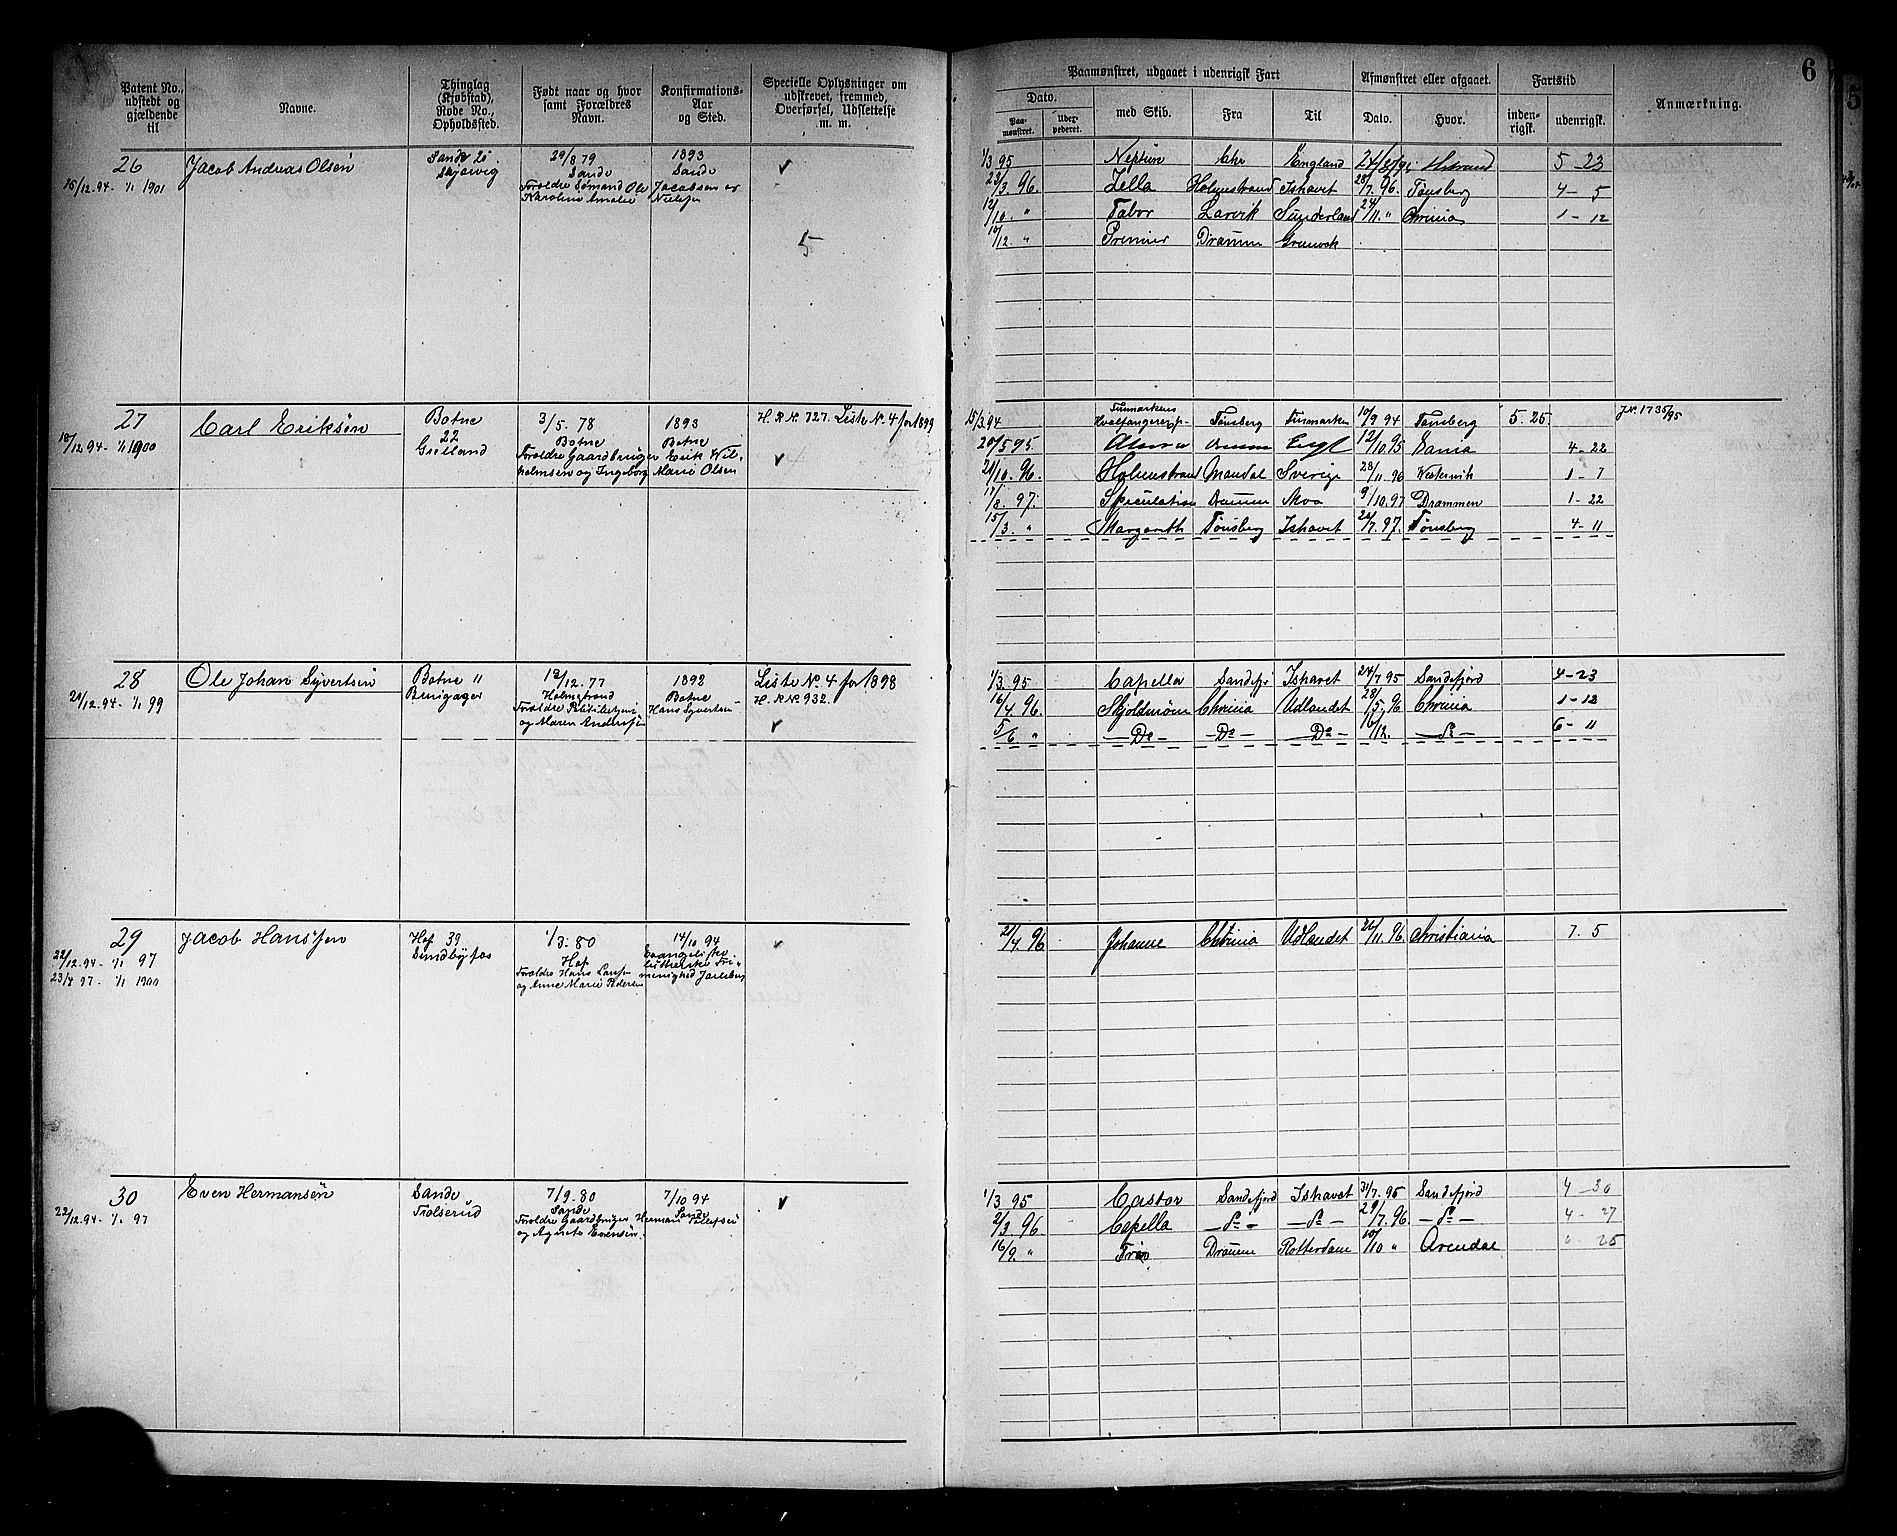 6
5
Patent No., udstedt og gjældende til
Navne.
Thinglag (Kjøbstad), Rode No., Opholdssted.
Født naar og hvor samt Forældres Navn.
Konfirmations-Aar og Sted.
Specielle Oplysninger om udskrevet, fremmed, Overførsel, Udslettelse m. m.
Paamønstret, udgaaet i udenrigsk Fart
Afmønstret eller afgaaet.
Fartstid
Anmærkning.
Dato.
Paamønstret.
med Skib.
Fra
Til
Dato.
Hvor.
indenrigsk.
udenrigsk.
26
15/12.94 - 1/1 1901
Jacob Andreas Olsen
Sande
29/8 79
Sande
Forældre Sømand Ole Jacobsen og
Karoline Amalie Nielsen
1893
Sande
5
1/3 95 Neptun Chr England 5 - 23
23/3. 96. Zella Holmestrand Ishavet 28/7. 96. Tønsberg 4 - 5
12/10. " Tabor Larvik Sunderland 24/11. " Chrinia 1 - 12
10/12. " Premier Dramm
27
18/12.94 - 1/1 1900
Carl Eriksen
Botne
22
Grelland
3/5. 78
Botne
Forældre Gaardbruger Erik Wilhelmsen og Ingeborg Marie Olsen
1893
Botne
H.R.No. 727. Liste No. 4 for 1899
15/3.94 Finmarkens Hvalfangerexp. Tønsberg Finmarken 10/9 94 Tønsberg 5. 25. J.No. 1735/95
20/5 95. Engl 12/10.95 4 - 22
21/10. 96. Holmestrand Mandal Sverige 28/11. 96 1 - 7
17/8. 97. Speculation Dramm Moss 9/10.97 Drammen 1 - 22
15/3. " Margareth Tønsberg Ishavet 26/7. 97. Tønsberg 4 - 11
28
21/12.94 - 1/1 99
Ole Johan Syvertsen
Botne 11
12/12. 77
Holmestrand
og Maren Andersen
1892
Botne
Hans Syvertsen
Liste No. 4 for 1898
H.R.No. 932.
1/3.95 Capella Sandefj Ishavet 24/7 95 Sandefjord 4 - 23
16/4. 96. Skjoldmøen Chrinia Udlandet 28/5. 96 Chrinia 1 - 12
5/6 " — Do — — Do — — Do — 16/12. — Do — 6 - 11
29
22/12.94 - 1/1 97
23/4 97. - 1/1 1900
Jacob Hanssen
Hof 39
Sundbyfos
1/3. 80
Hof
Forældre Hans Larsen
og Anne Marie Pedersen
14/10 94
Evangelisk lutherske Frimenighed Jarlsberg
21/4. 96 Johanne Chrinia Udlandet 26/11. 96. Christiania 7. 5
30
22/12.94 - 1/1 97
Even Hermansen
Sande
7/9. 80
Sande
Forældre Gaardbruger Herman Tollefsen
og Agnete Evensen.
7/10 94
Sande
1/3 95 Castor Sandefjord Ishavet 31/7. 95 Sandefjord 4 - 30
2/3. 96 Capella — Do — — Do — 29/7. 96 — Do — 4 - 27
16/9. " Dramm Rotterdam 10/10 " Arendal 25